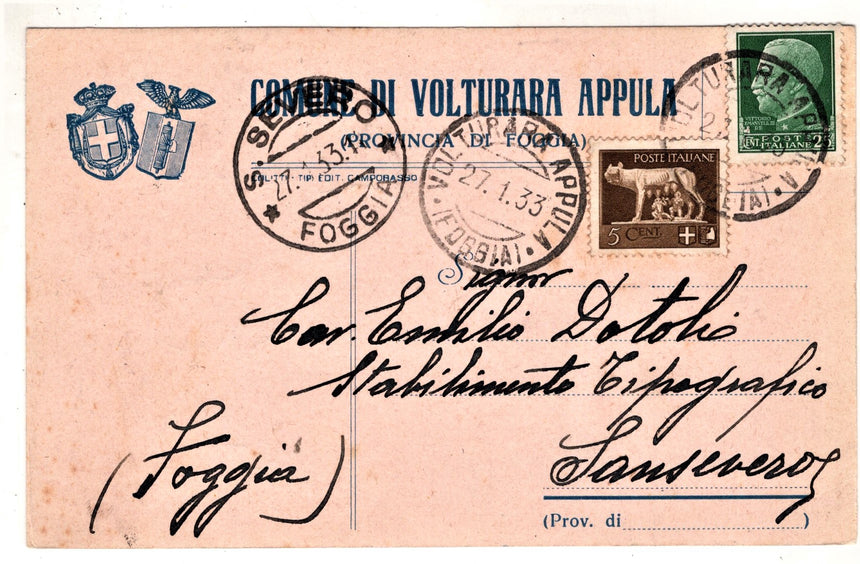 COMUNE DI VOLTURARA APPULA
(PROVINCIA DI FOGGIA)
COLITTI - TIP. EDIT. CAMPOBASSO
* S. SEVERO *
27.1.33.
FOGGIA
VOLTURARA APPULA
27.1.33
(FOGGIA)
POSTE ITALIANE
5 CENT.
VOLTURARA AP
VITTORIO
EMANUELE III
RE
POSTE
CENT. ITALIANE 25
Signor
Cav. Emilio Dotoli
Stabilimento Tipografico
Sansevero
(Foggia)
(Prov. di )